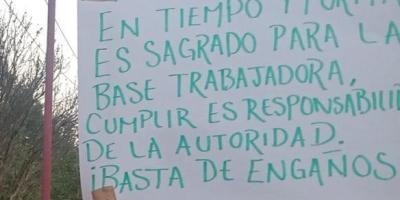 EN TIEMPO Y FORMA
ES SAGRADO PARA LA
BASE TRABAJADORA,
CUMPLIR ES RESPONSABILI
DE LA AUTORIDAD.
¡BASTA DE ENGAÑOS